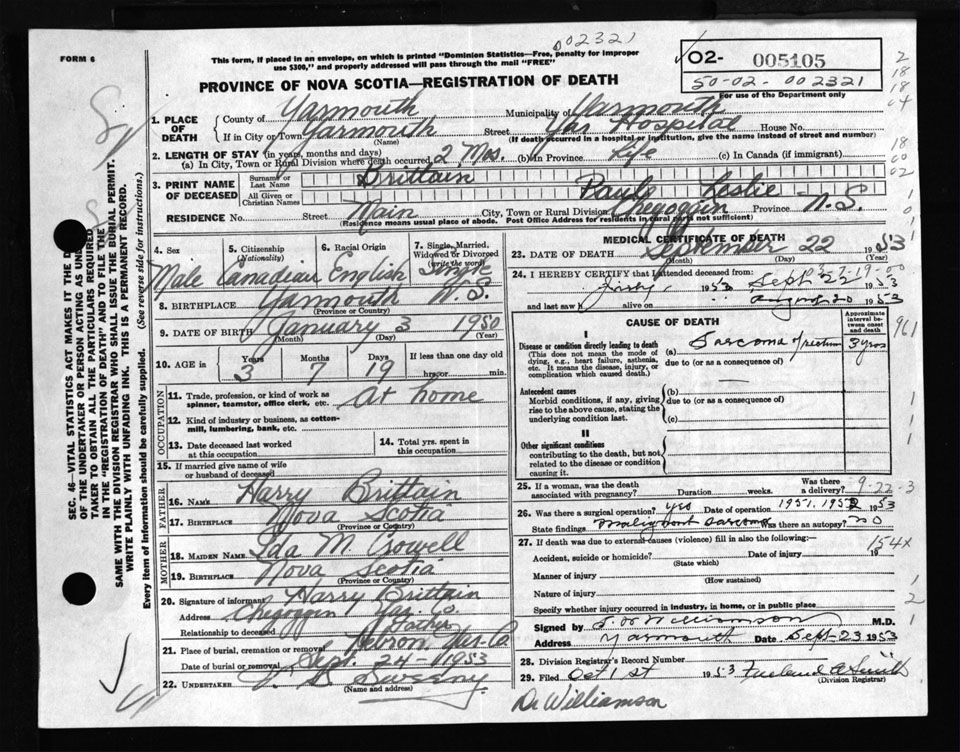 002321
FORM 6
This form, if placed in an envelope, on which is printed "Dominion Statistics—Free, penalty for improper
use $300," and properly addressed will pass through the mail "FREE"
O2- 005105
50-02-002321
For use of the Department only
PROVINCE OF NOVA SCOTIA—REGISTRATION OF DEATH
1. PLACE OF DEATH
County of Yarmouth Municipality of Yarmouth
If in City or Town Yarmouth Street Yar Hospital House No.
(Name) (If death occurred in a hospital or institution, give the name instead of street and number)
2. LENGTH OF STAY (in years, months and days)
(a) In City, Town or Rural Division where death occurred 2 Mos. (b) In Province Life (c) In Canada (if immigrant)
3. PRINT NAME OF DECEASED
Surname or Last Name Brittain
All Given or Christian Names Paul Leslie
RESIDENCE No. Street Main City, Town or Rural Division Chegoggin Province N.S.
(Residence means usual place of abode. Post Office Address for residents in rural parts not sufficient)
4. Sex Male
5. Citizenship (Nationality) Canadian
6. Racial Origin English
7. Single, Married, Widowed or Divorced (write the word) Single
8. BIRTHPLACE Yarmouth N.S.
(Province or Country)
9. DATE OF BIRTH January 3 1950
(Month) (Day) (Year)
10. AGE in Years 3 Months 7 Days 19 If less than one day old hrs. or min.
OCCUPATION
11. Trade, profession, or kind of work as spinner, teamster, office clerk, etc. At home
12. Kind of industry or business, as cotton-mill, lumbering, bank, etc.
13. Date deceased last worked at this occupation
14. Total yrs. spent in this occupation
15. If married give name of wife or husband of deceased
FATHER
16. NAME Harry Brittain
17. BIRTHPLACE Nova Scotia
(Province or Country)
MOTHER
18. MAIDEN NAME Ida M. Crowell
19. BIRTHPLACE Nova Scotia
(Province or Country)
20. Signature of informant Harry Brittain
Address Chegoggin Yar Co.
Relationship to deceased Father
21. Place of burial, cremation or removal Hebron, Yar. Co
Date of burial or removal Sept. 24-1953
22. UNDERTAKER V. S. Sweeny
(Name and address)
MEDICAL CERTIFICATE OF DEATH
23. DATE OF DEATH September 22 1953
(Month) (Day) (Year)
24. I HEREBY CERTIFY that I attended deceased from
1953 Sept 22 1953
and last saw h alive on August 20 1953
CAUSE OF DEATH
Approximate interval between onset and death
I
Disease or condition directly leading to death
(This does not mean the mode of dying, e.g., heart failure, asthenia, etc. It means the disease, injury, or complication which caused death.)
(a) Sarcoma of rectum 3 yrs
due to (or as a consequence of)
Antecedent causes
Morbid conditions, if any, giving rise to the above cause, stating the underlying condition last.
(b)
due to (or as a consequence of)
(c)
II
Other significant conditions
contributing to the death, but not related to the disease or condition causing it.
25. If a woman, was the death associated with pregnancy? Duration weeks. Was there a delivery? 9-22-3
26. Was there a surgical operation? yes Date of operation 1951, 1952 1953
State findings Malignant sarcoma Was there an autopsy? no
27. If death was due to external causes (violence) fill in also the following:—
Accident, suicide or homicide? Date of injury 19
(State which)
154X
Manner of injury
(How sustained)
Nature of injury
Specify whether injury occurred in industry, in home, or in public place
Signed by Williamson M.D.
Address Yarmouth Date Sept 23 1953
28. Division Registrar's Record Number
29. Filed Oct 1st 1953 Smith
(Division Registrar)
Dr Williamson
SEC. 46—VITAL STATISTICS ACT MAKES IT THE
OF THE UNDERTAKER OR PERSON ACTING AS
TAKER TO OBTAIN ALL THE PARTICULARS REQUIRED
IN THE "REGISTRATION OF DEATH" AND TO FILE THE
SAME WITH THE DIVISION REGISTRAR WHO SHALL ISSUE THE BURIAL PERMIT.
WRITE PLAINLY WITH UNFADING INK. THIS IS A PERMANENT RECORD.
Every item of information should be carefully supplied. (See reverse side for instructions.)
2
18
18
04
18
00
02
1
0
1
961
1
1
1
1
2